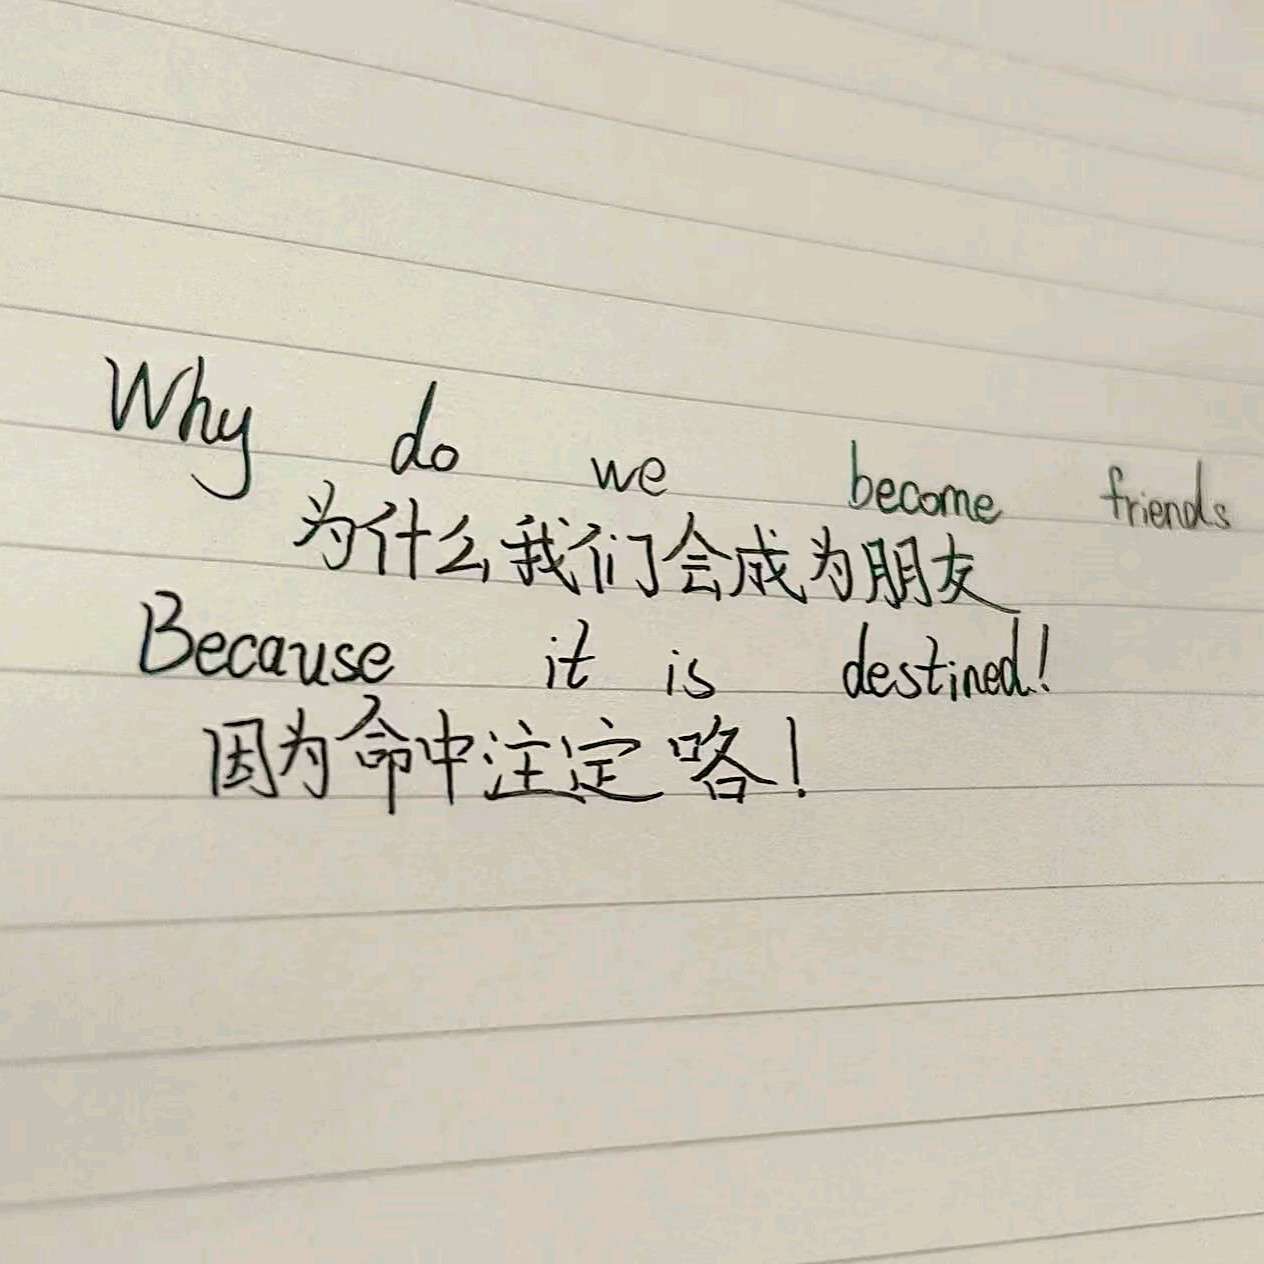 Why do we become friends
为什么我们会成为朋友
Because it is destined!
因为命中注定咯!